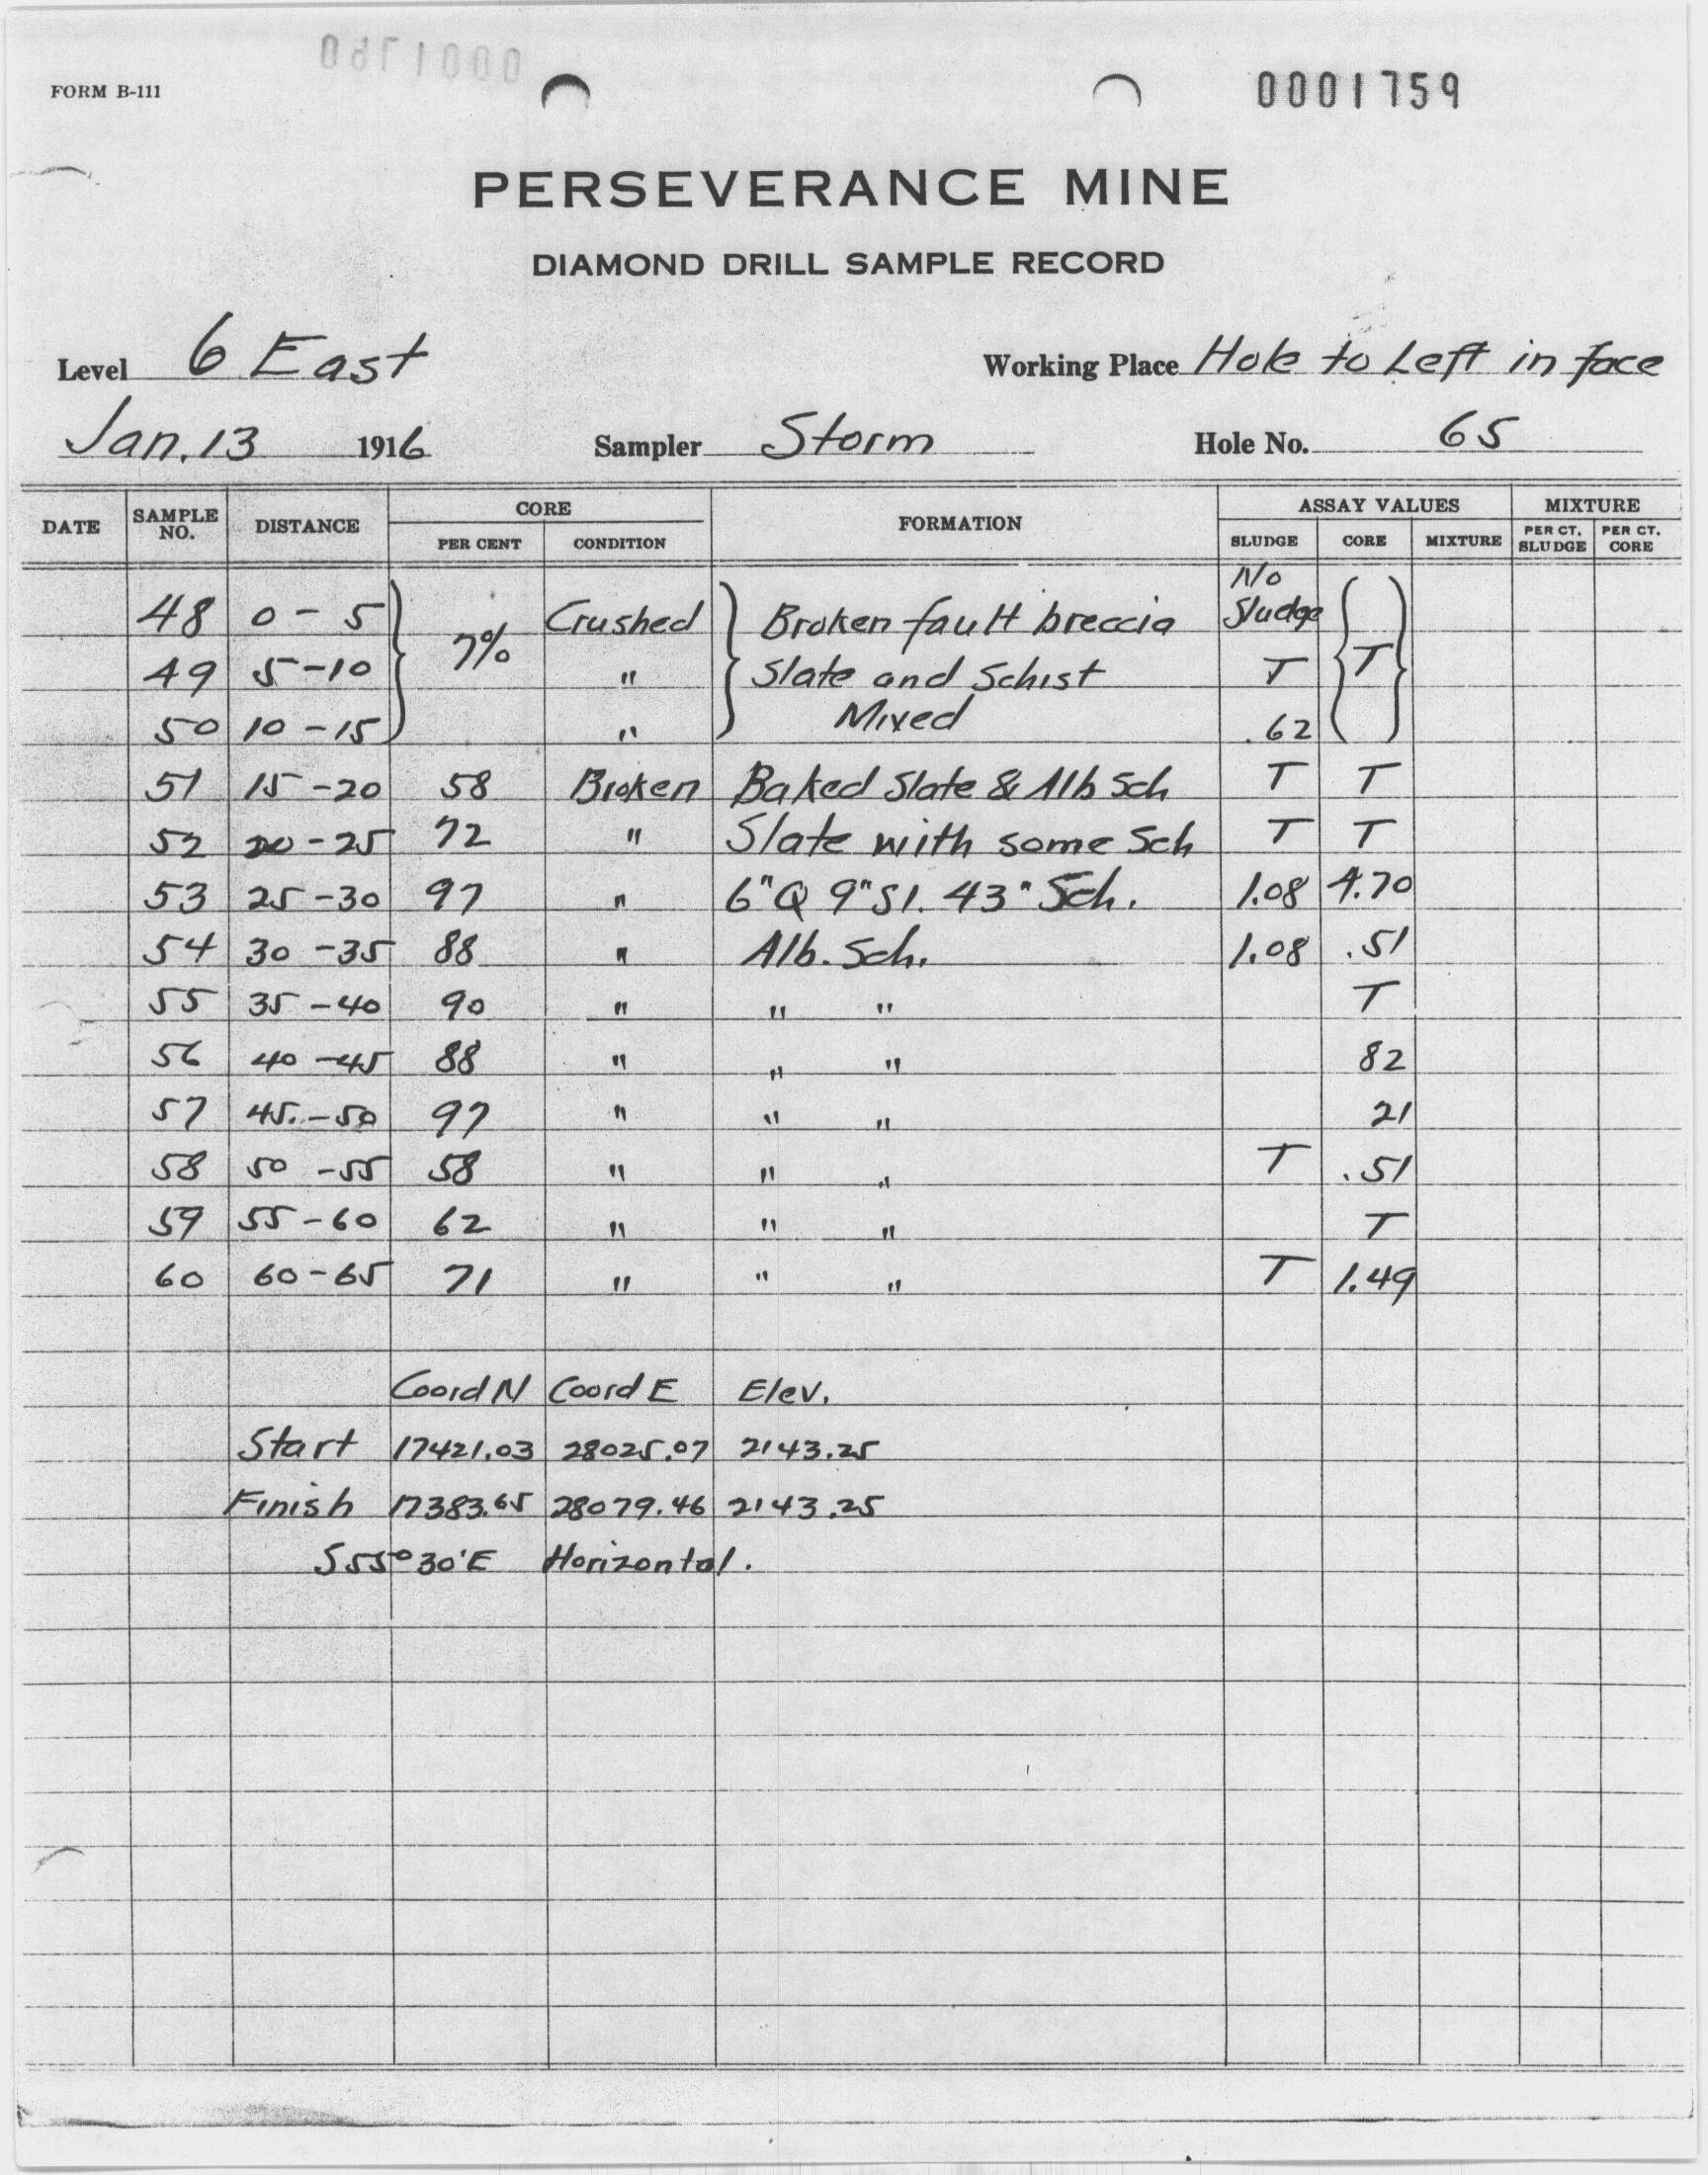 0001760
FORM B-111
0001759
PERSEVERANCE MINE
DIAMOND DRILL SAMPLE RECORD
Level 6 East Working Place Hole to Left in face
Jan. 13 1916 Sampler Storm Hole No. 65
DATE SAMPLE NO. DISTANCE CORE PER CENT CONDITION FORMATION ASSAY VALUES SLUDGE CORE MIXTURE MIXTURE PER CT. SLUDGE PER CT. CORE
48 0 - 5 7% Crushed Broken fault breccia No Sludge T
49 5 - 10 " Slate and Schist T
50 10 - 15 " Mixed .62
51 15 - 20 58 Broken Baked Slate & Alb Sch T T
52 20 - 25 72 " Slate with some Sch T T
53 25 - 30 97 " 6" Q 9" Sl. 43" Sch. 1.08 4.70
54 30 - 35 88 " Alb. Sch. 1.08 .51
55 35 - 40 90 " " " T
56 40 - 45 88 " " " 82
57 45. - 50 97 " " " 21
58 50 - 55 58 " " " T .51
59 55 - 60 62 " " " T
60 60 - 65 71 " " " T 1.49
Coord N Coord E Elev.
Start 17421.03 28025.07 2143.25
Finish 17383.65 28079.46 2143.25
S55°30'E Horizontal.